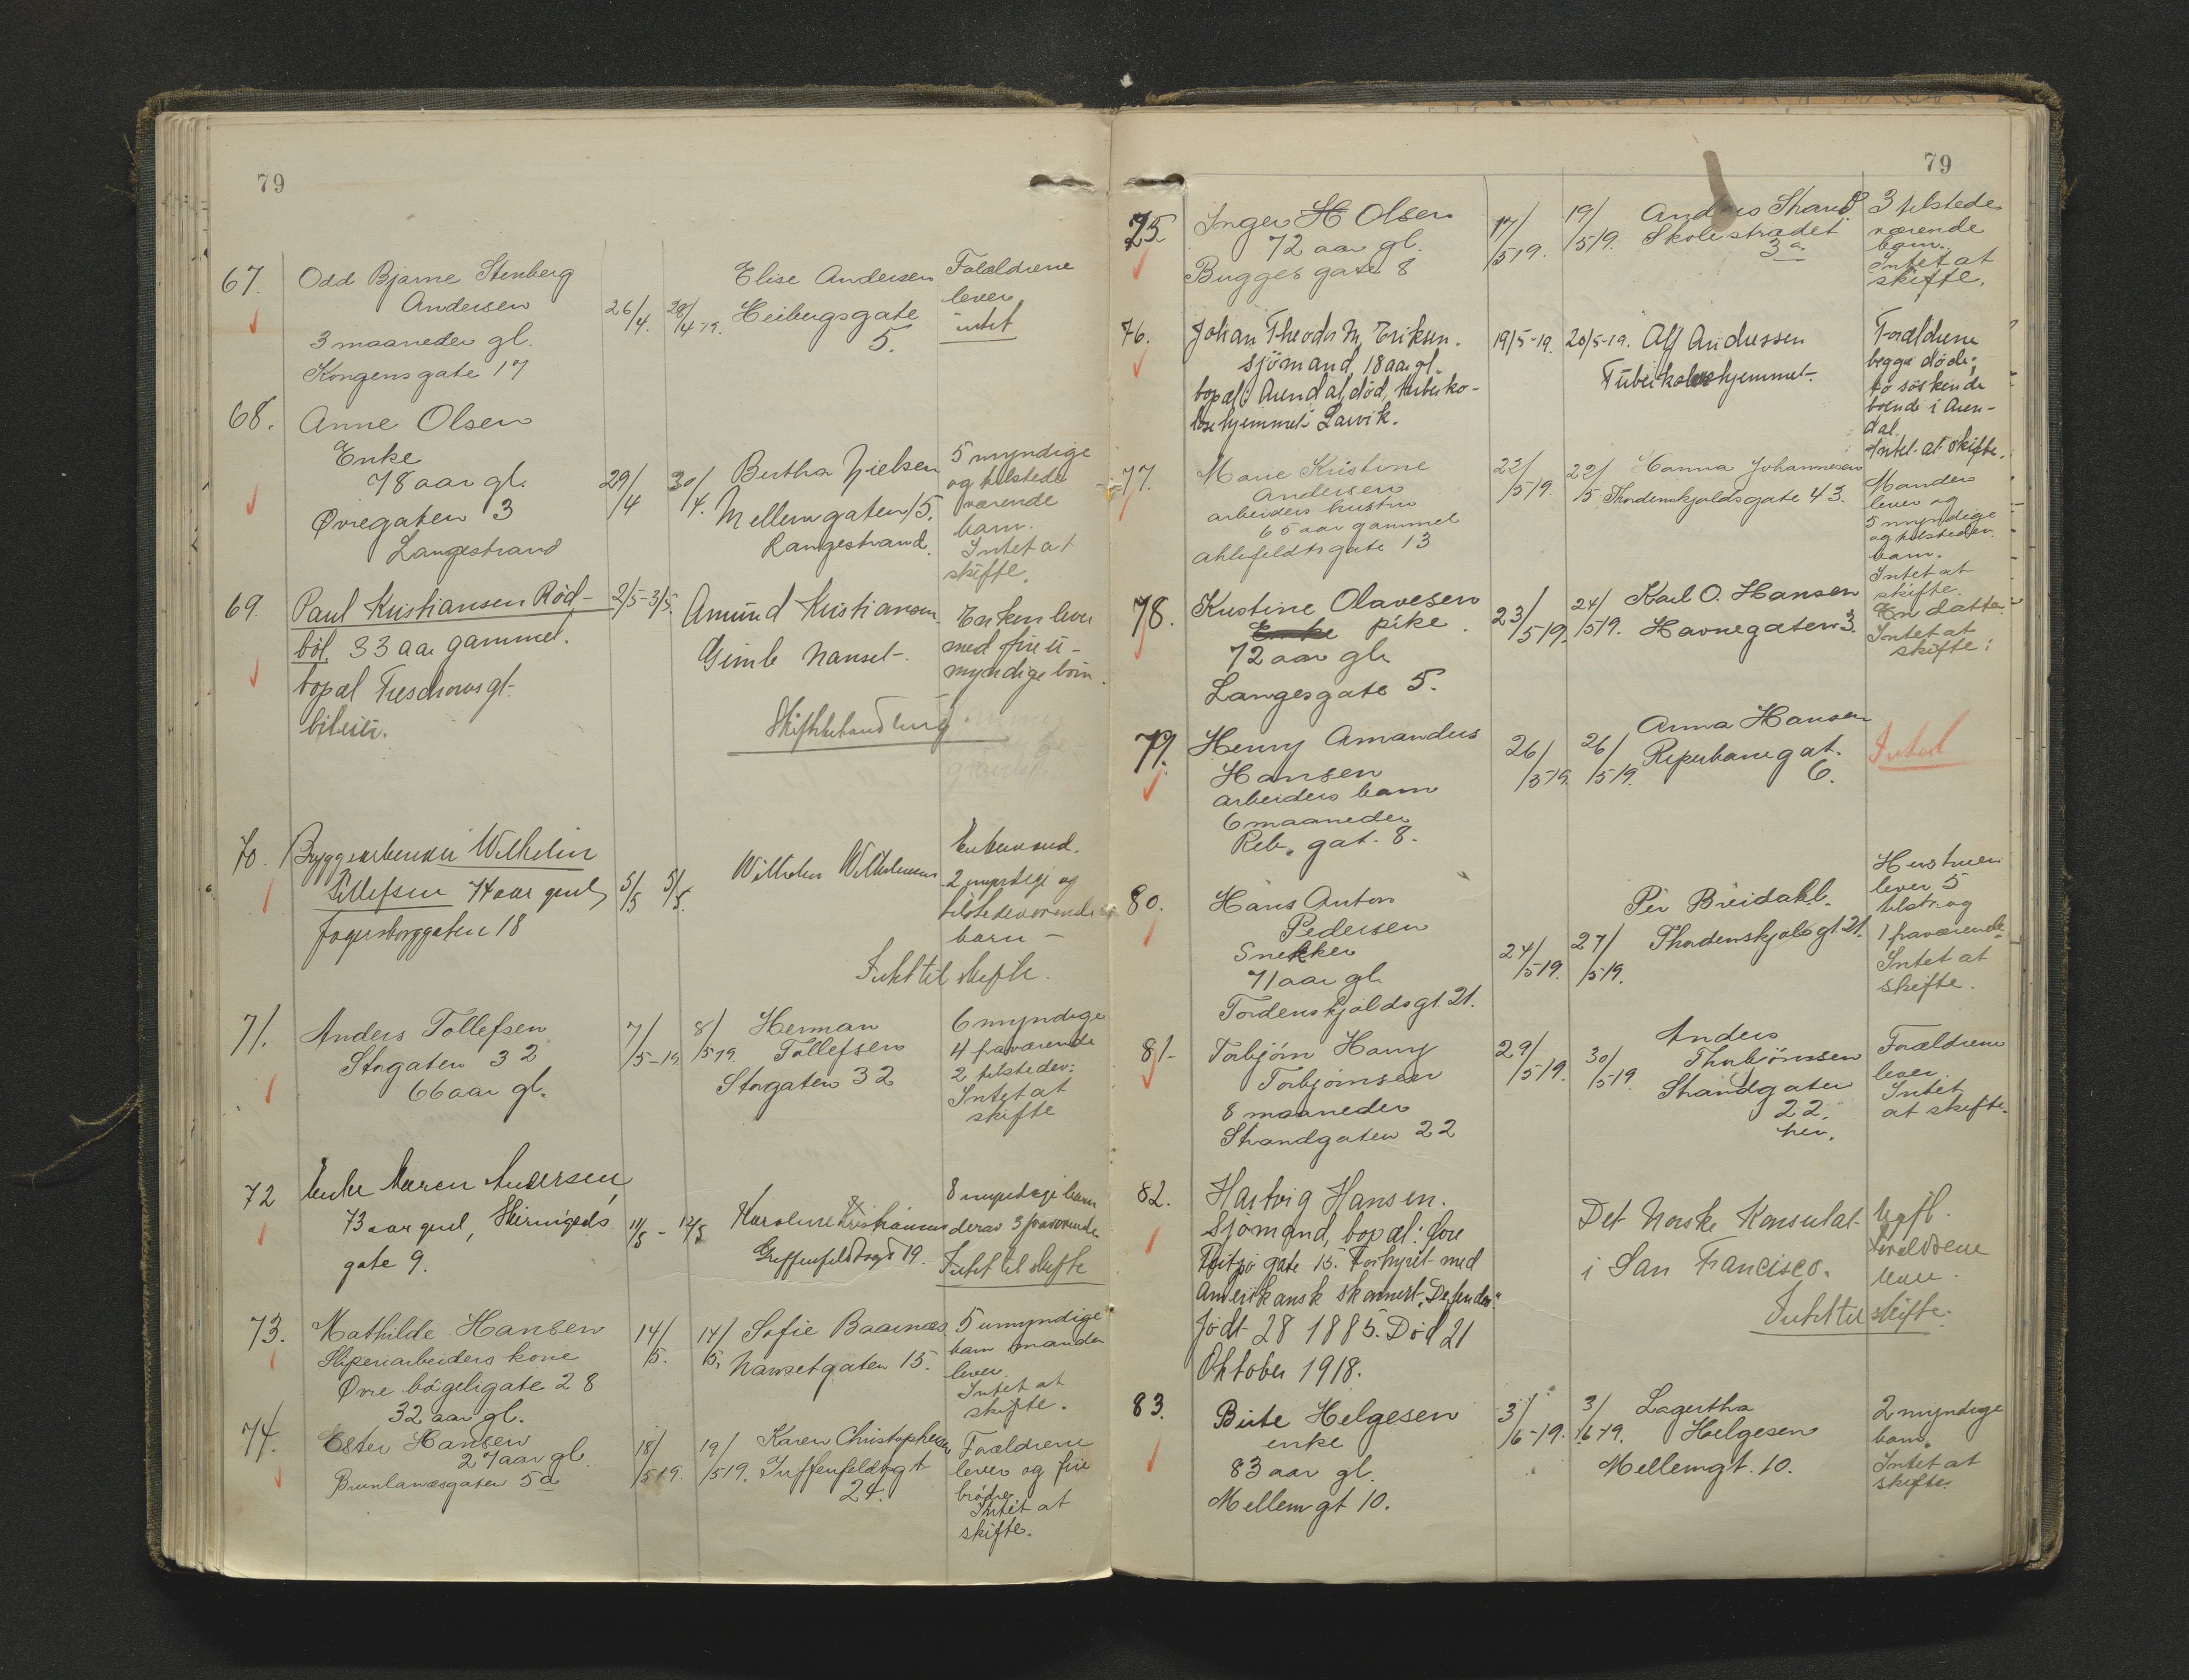 79
67. Odd Bjarne Stenberg
Andersen
3 maaneder gl.
Kongensgate 17
26/4. 28/4-19.
Elise Andersen
Heibergsgate
5.
Forældrene
lever
intet
68. Anne Olsen
Enke
78 aar gl.
Øvregaten 3
Langestrand
29/4 30/4.
Bertha Nielsen
Mellemgaten 15.
Langestrand.
5 myndige
og tilstede
værende
barn.
Intet at
skifte.
69. Paul Kristiansen Röd-
böl, 33 aar gammel.
bopæl Treschowsgt.
2/5-3/5.
Amund Kristiansen.
Gimle Nanset.
Enken lever
med fire u-
myndige börn.
Skiftebehandling
70. Bryggearbeider Wilhelm
Tellefsen 74 aar gml
Fagerborggaten 18
5/5 5/5.
Wilhelm Wilhelmsen
Enkemand.
2 myndige og
tilstedeværende
barn -
Intet til skifte.
71. Anders Tollefsen
Storgaten 32
66 aar gl.
7/5-19 8/5 19.
Herman
Tollefsen
Storgaten 32
6 myndige
4 fraværende
2 tilstedev:
Intet at
skifte
72 Enke Maren Andersen,
73 aar gml,
gate 9.
11/5 - 12/5
Karoline Kristiansen
Griffenfeldtsgt 19.
8 myndige barn
derav 3 fraværende
Intet til skifte
73. Mathilde Hansen
Sliperiarbeiders kone
Øvre bögeligate 28
32 aar gl.
14/5. 14/5.
Sofie Baarnæs
Nansetgaten 15.
5 umyndige
barn manden
lever.
Intet at
skifte.
74. Ester Hansen
27 aar gl.
Brunlanæsgaten 5a
18/519. 19/519.
Karen Christophersen
Griffenfeldtsgt
24.
Forældrene
lever og fire
brødre
Intet at
skifte.
79
75 Inger H Olsen
72 aar gl.
Bugges gate 8
17/519. 19/519.
Anders Strand
Skolestrædet
3a
3 tilstede
værende
barn.
Intet at
skifte.
76. Johan Theodor M. Eriksen.
sjömand, 18 aar gl.
bopæl: Arendal, död, tuberko-
losehjemmet Larvik.
19/5-19. 20/5-19.
Alf Andressen
Tuberkolosehjemmet.
Forældrene
begge döde,
to söskende
boende i Aren-
dal
Intet at skifte.
77. Marie Kristine
Andersen
arbeiders hustru
65 aar gammel
Ahlefeldtsgate 13
22/519. 22/5
Hanna Johannesen
Thordenskjoldsgate 43.
Manden
lever og
5 myndige
og tilstedev.
barn.
Intet at
skifte.
78. Kristine Olavesen
Enke pike.
72 aar gl.
Langesgate 5.
23/519. 24/519.
Karl O. Hansen
Havnegaten 3.
En datter.
Intet at
skifte.
79. Henry Amandus
Hansen
arbeiders barn
6 maaneder
Reb. gat. 8.
26/519. 26/519.
Anna Hansen
Reperbanegat.
6.
Intet
80. Hans Anton
Pedersen
Snekker
71 aar gl.
Tordenskjoldsgt. 21.
24/519. 27/519.
Per Breidahl.
Thordenskjolsgt. 21.
Hustruen
lever 5
tilst. og
1 fraværende.
Intet at
skifte.
81- Torbjörn Harry
Torbjörnsen
8 maaneder
Strandgaten 22
29/519. 30/519.
Anders
Thorbjörnsen
Strandgaten
22.
her.
Forældrene
lever.
Intet
at skifte.
82. Hartvig Hansen.
Sjömand, bopæl: Øvre
Fritzø gate 15. Forhyret med
Amerikansk skonnert "Defender".
Födt 28 1885. Död 21
Oktober 1918.
Det Norske Konsulat
i San Francisco.
Ugift.
Forældrene
lever.
Intet til skifte.
83. Birte Helgesen
enke
83 aar gl.
Mellemgt 10.
3/6-19. 3/6-19.
Lagertha
Helgesen
Mellemgt. 10.
2 myndige
barn.
Intet at
skifte.